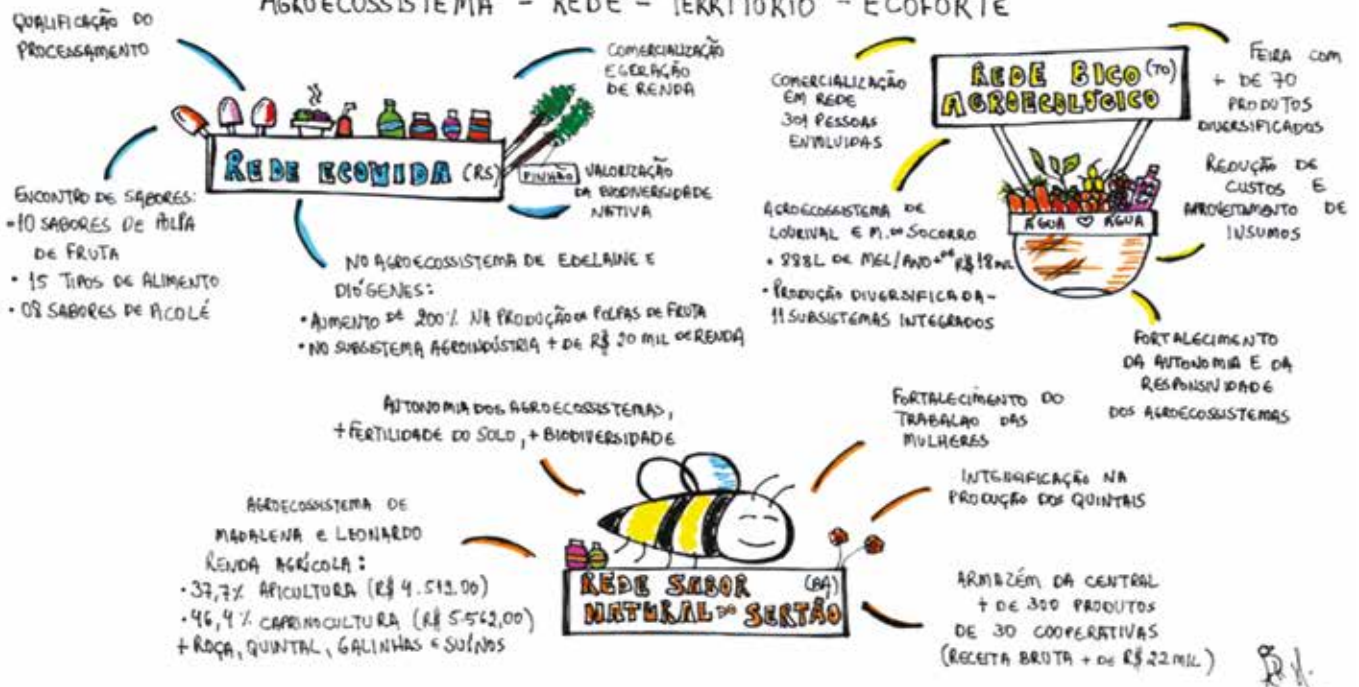 AGROECOSSISTEMA - REDE - TERRITÓRIO - ECOFORTE
QUALIFICAÇÃO DO
PROCESSAMENTO
COMERCIALIZAÇÃO
E GERAÇÃO
DE RENDA
REDE ECOVIDA (RS)
PINHÃO
VALORIZAÇÃO
DA BIODIVERSIDADE
NATIVA
ENCONTRO DE SABORES:
•10 SABORES DE POLPA
DE FRUTA
• 15 TIPOS DE ALIMENTO
• 08 SABORES DE PICOLÉ
NO AGROECOSSISTEMA DE EDELAINE E
DIÓGENES:
• AUMENTO DE 200% NA PRODUÇÃO DE POLPAS DE FRUTA
• NO SUBSISTEMA AGROINDÚSTRIA + DE R$ 20 MIL DE RENDA
REDE BICO (TO)
AGROECOLÓGICO
COMERCIALIZAÇÃO
EM REDE
301 PESSOAS
ENVOLVIDAS
FEIRA COM
+ DE 70
PRODUTOS
DIVERSIFICADOS
REDUÇÃO DE
CUSTOS E
APROVEITAMENTO DE
INSUMOS
ÁGUA ♡ ÁGUA
AGROECOSSISTEMA DE
LOURIVAL E M.ª SOCORRO
• 888L DE MEL/ANO + DE R$ 18 MIL
• PRODUÇÃO DIVERSIFICADA-
11 SUBSISTEMAS INTEGRADOS
FORTALECIMENTO
DA AUTONOMIA E DA
RESPONSIVIDADE
DOS AGROECOSSISTEMAS
AUTONOMIA DOS AGROECOSSISTEMAS,
+ FERTILIDADE DO SOLO, + BIODIVERSIDADE
FORTALECIMENTO DO
TRABALHO DAS
MULHERES
INTENSIFICAÇÃO NA
PRODUÇÃO DOS QUINTAIS
AGROECOSSISTEMA DE
MADALENA e LEONARDO
RENDA AGRÍCOLA:
• 37,7% APICULTURA (R$ 4.519.00)
• 46,4% CAPRINOCULTURA (R$ 5.562,00)
+ ROÇA, QUINTAL, GALINHAS E SUÍNOS
REDE SABOR (BA)
NATURAL DO SERTÃO
ARMAZÉM DA CENTRAL
+ DE 300 PRODUTOS
DE 30 COOPERATIVAS
(RECEITA BRUTA + DE R$ 22 MIL)